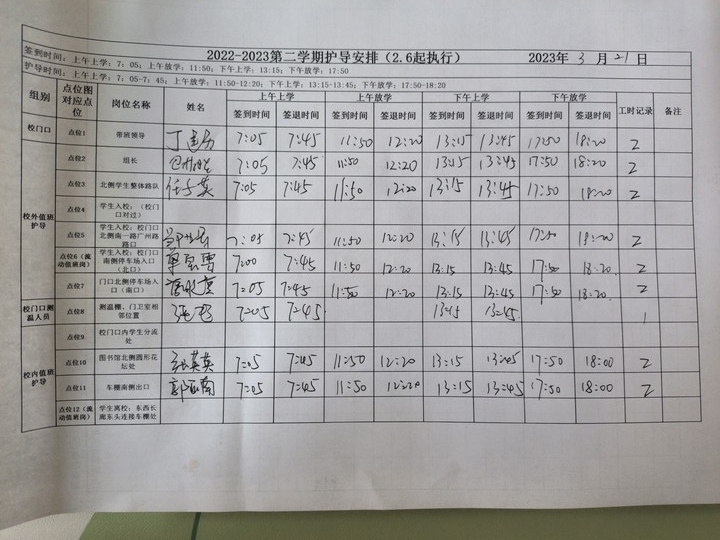 2022-2023第二学期护导安排（2.6起执行） 2023年 3 月 21 日
签到时间：上午上学：7：05；上午放学：11:50；下午上学：13:15；下午放学：17:50
护导时间：上午上学：7：05-7：45；上午放学：11:50-12:20；下午上学：13:15-13:45；下午放学：17:50-18:20
组别 点位图对应点位 岗位名称 姓名 上午上学 上午放学 下午上学 下午放学 工时记录 备注
签到时间 签退时间 签到时间 签退时间 签到时间 签退时间 签到时间 签退时间
校门口 点位1 带班领导 7:05 7:45 11:50 12:20 13:15 13:45 17:50 18:20 2
校外值班护导 点位2 组长 7:05 7:45 11:50 12:20 13:15 13:45 17:50 18:20 2
点位3 北侧学生整体路队 7:05 7:45 11:50 12:20 13:15 13:45 17:50 18:20 2
点位4 学生入校：（校门口对过）
点位5 学生入校：校门口北侧南一路广州路路口 7:05 7:45 11:50 12:20 13:15 13:45 17:50 18:20 2
点位6（流动值班岗） 学生入校：校门口南侧停车场入口（北口） 7:00 7:45 11:50 12:20 13:15 13:45 17:50 18:20 2
点位7 门口北侧停车场入口（南口） 7:05 7:45 11:50 12:20 13:15 13:45 17:50 18:20 2
校门口测温人员 点位8 测温棚、门卫室相邻位置 7:05 7:45 13:15 13:45 1
校内值班护导 点位9 校门口内学生分流处
点位10 图书馆北侧圆形花坛处 张英英 7:05 7:45 11:50 12:20 13:15 13:45 17:50 18:00 2
点位11 车棚南侧出口 7:05 7:45 11:50 12:20 13:15 13:45 17:50 18:00 2
点位12（流动值班岗） 学生离校：东西长廊东头连接车棚处